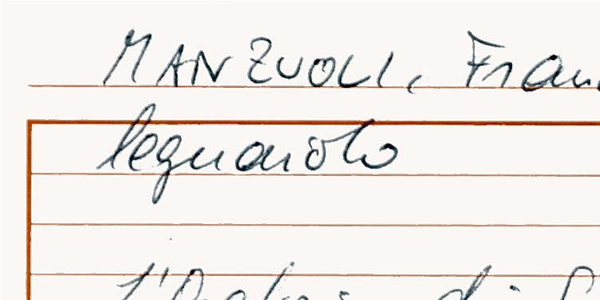 MANZUOLI, Fran
legnaiolo